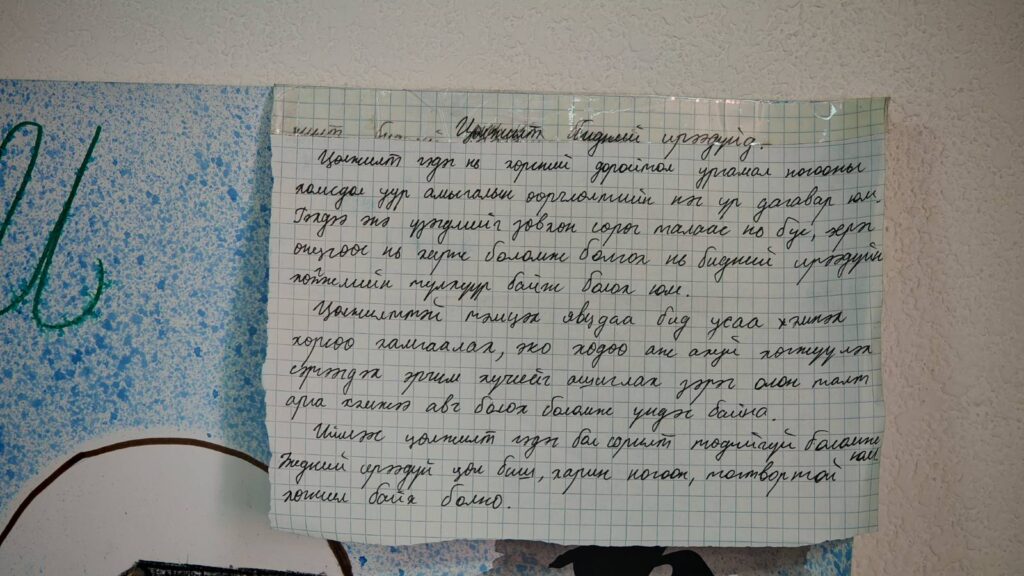 Цөлжилт бидний ирээдүйд.
Цөлжилт гэдэг нь хөрсний доройтол ургамал ногооны
хомсдол уур амьсгалын өөрчлөлтийн нэг үр дагавар юм.
Гэхдээ энэ үзэгдлийг зөвхөн сөрөг талаас нь бус, эерэг
өнцгөөс нь харж боломж болгох нь бидний ирээдүйн
хөгжлийн түлхүүр байж болох юм.
Цөлжилттэй тэмцэх явцдаа бид усаа хэмнэх
хөрсөө хамгаалах, эко хөдөө аж ахуй хөгжүүлэх
сэргээгдэх эрчим хүчийг ашиглах зэрэг олон талт
арга хэмжээ авч болох боломж үүдэг байна.
Иймээс цөлжилт гэдэг бол сорилт төдийгүй боломж
юм.
Бидний ирээдүй цөл биш, харин ногоон, тогтвортой
хөгжил байх болно.
И